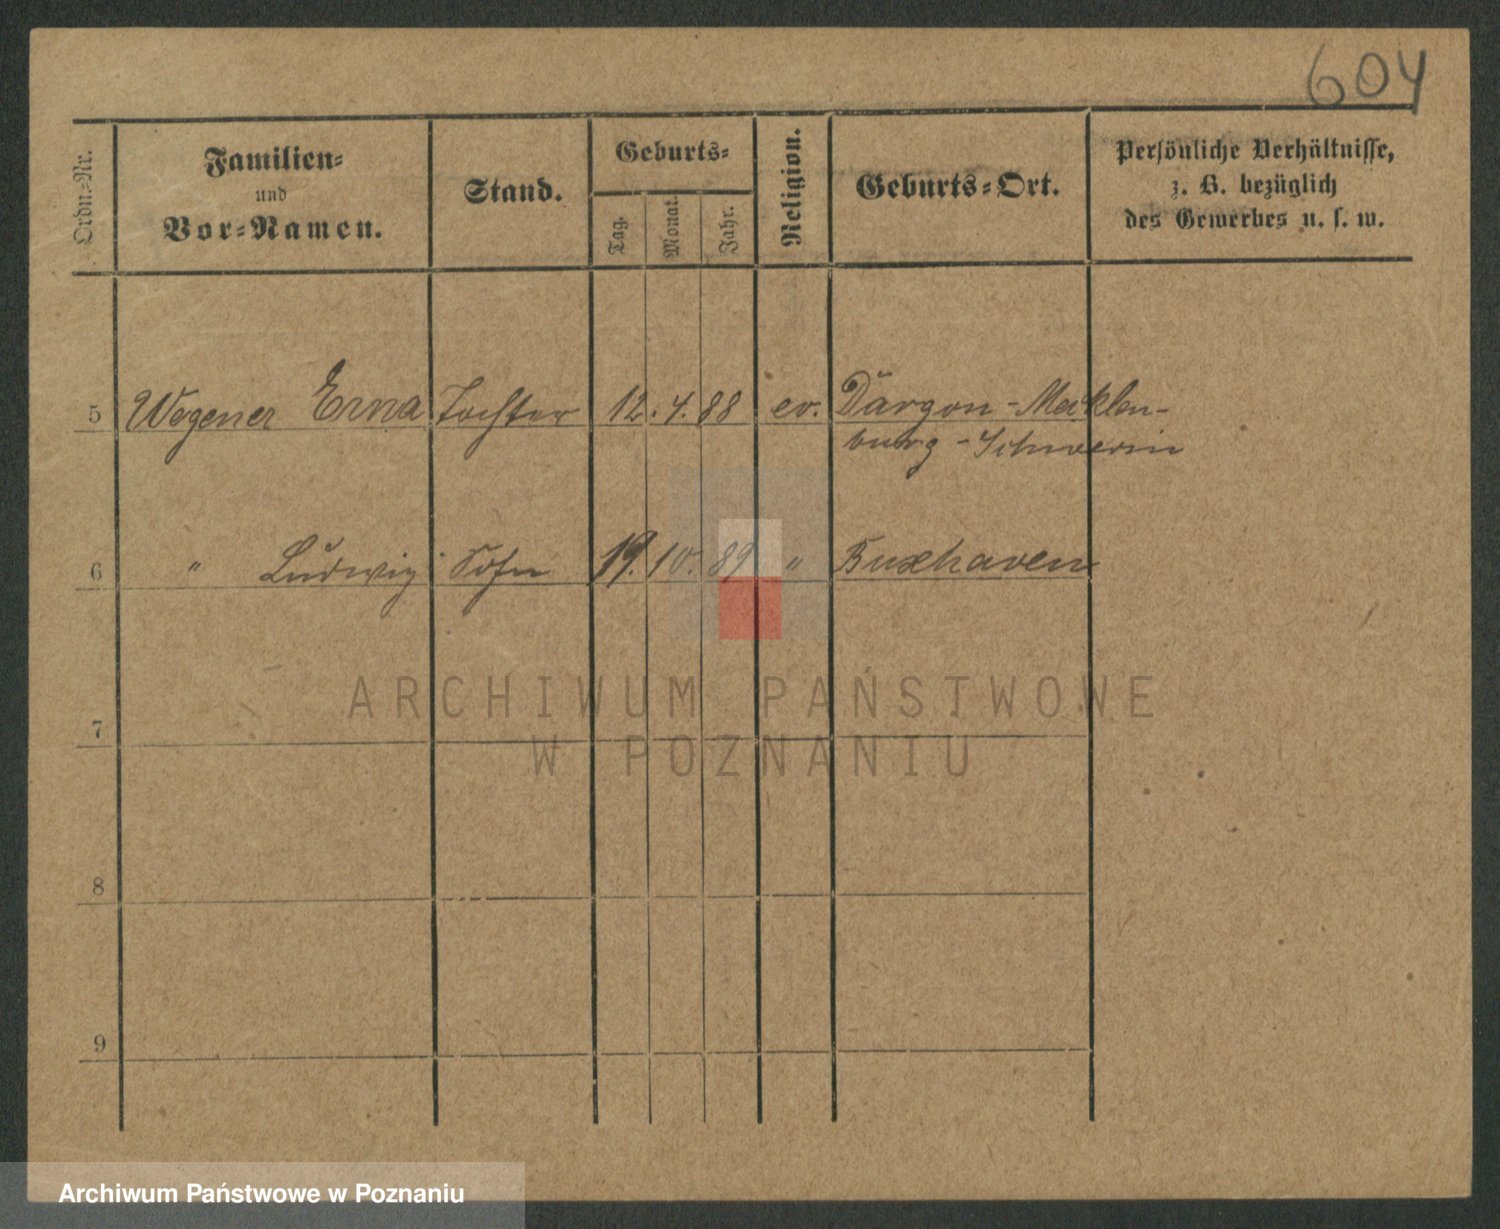 604
Ordn.-Nr.
Familien-
und
Vor-Namen.
Stand.
Geburts-
Tag.
Monat.
Jahr.
Religion.
Geburts-Ort.
Persönliche Verhältnisse,
z. B. bezüglich
des Gewerbes u. s. w.
5 Wegener Erna Tochter 12. 4. 88 ev. Dargon-Mecklen-
burg-Schwerin
6 " Ludwig Sohn 19. 10. 89 " Cuxhaven
7
8
9
ARCHIWUM PAŃSTWOWE
W POZNANIU
Archiwum Państwowe w Poznaniu